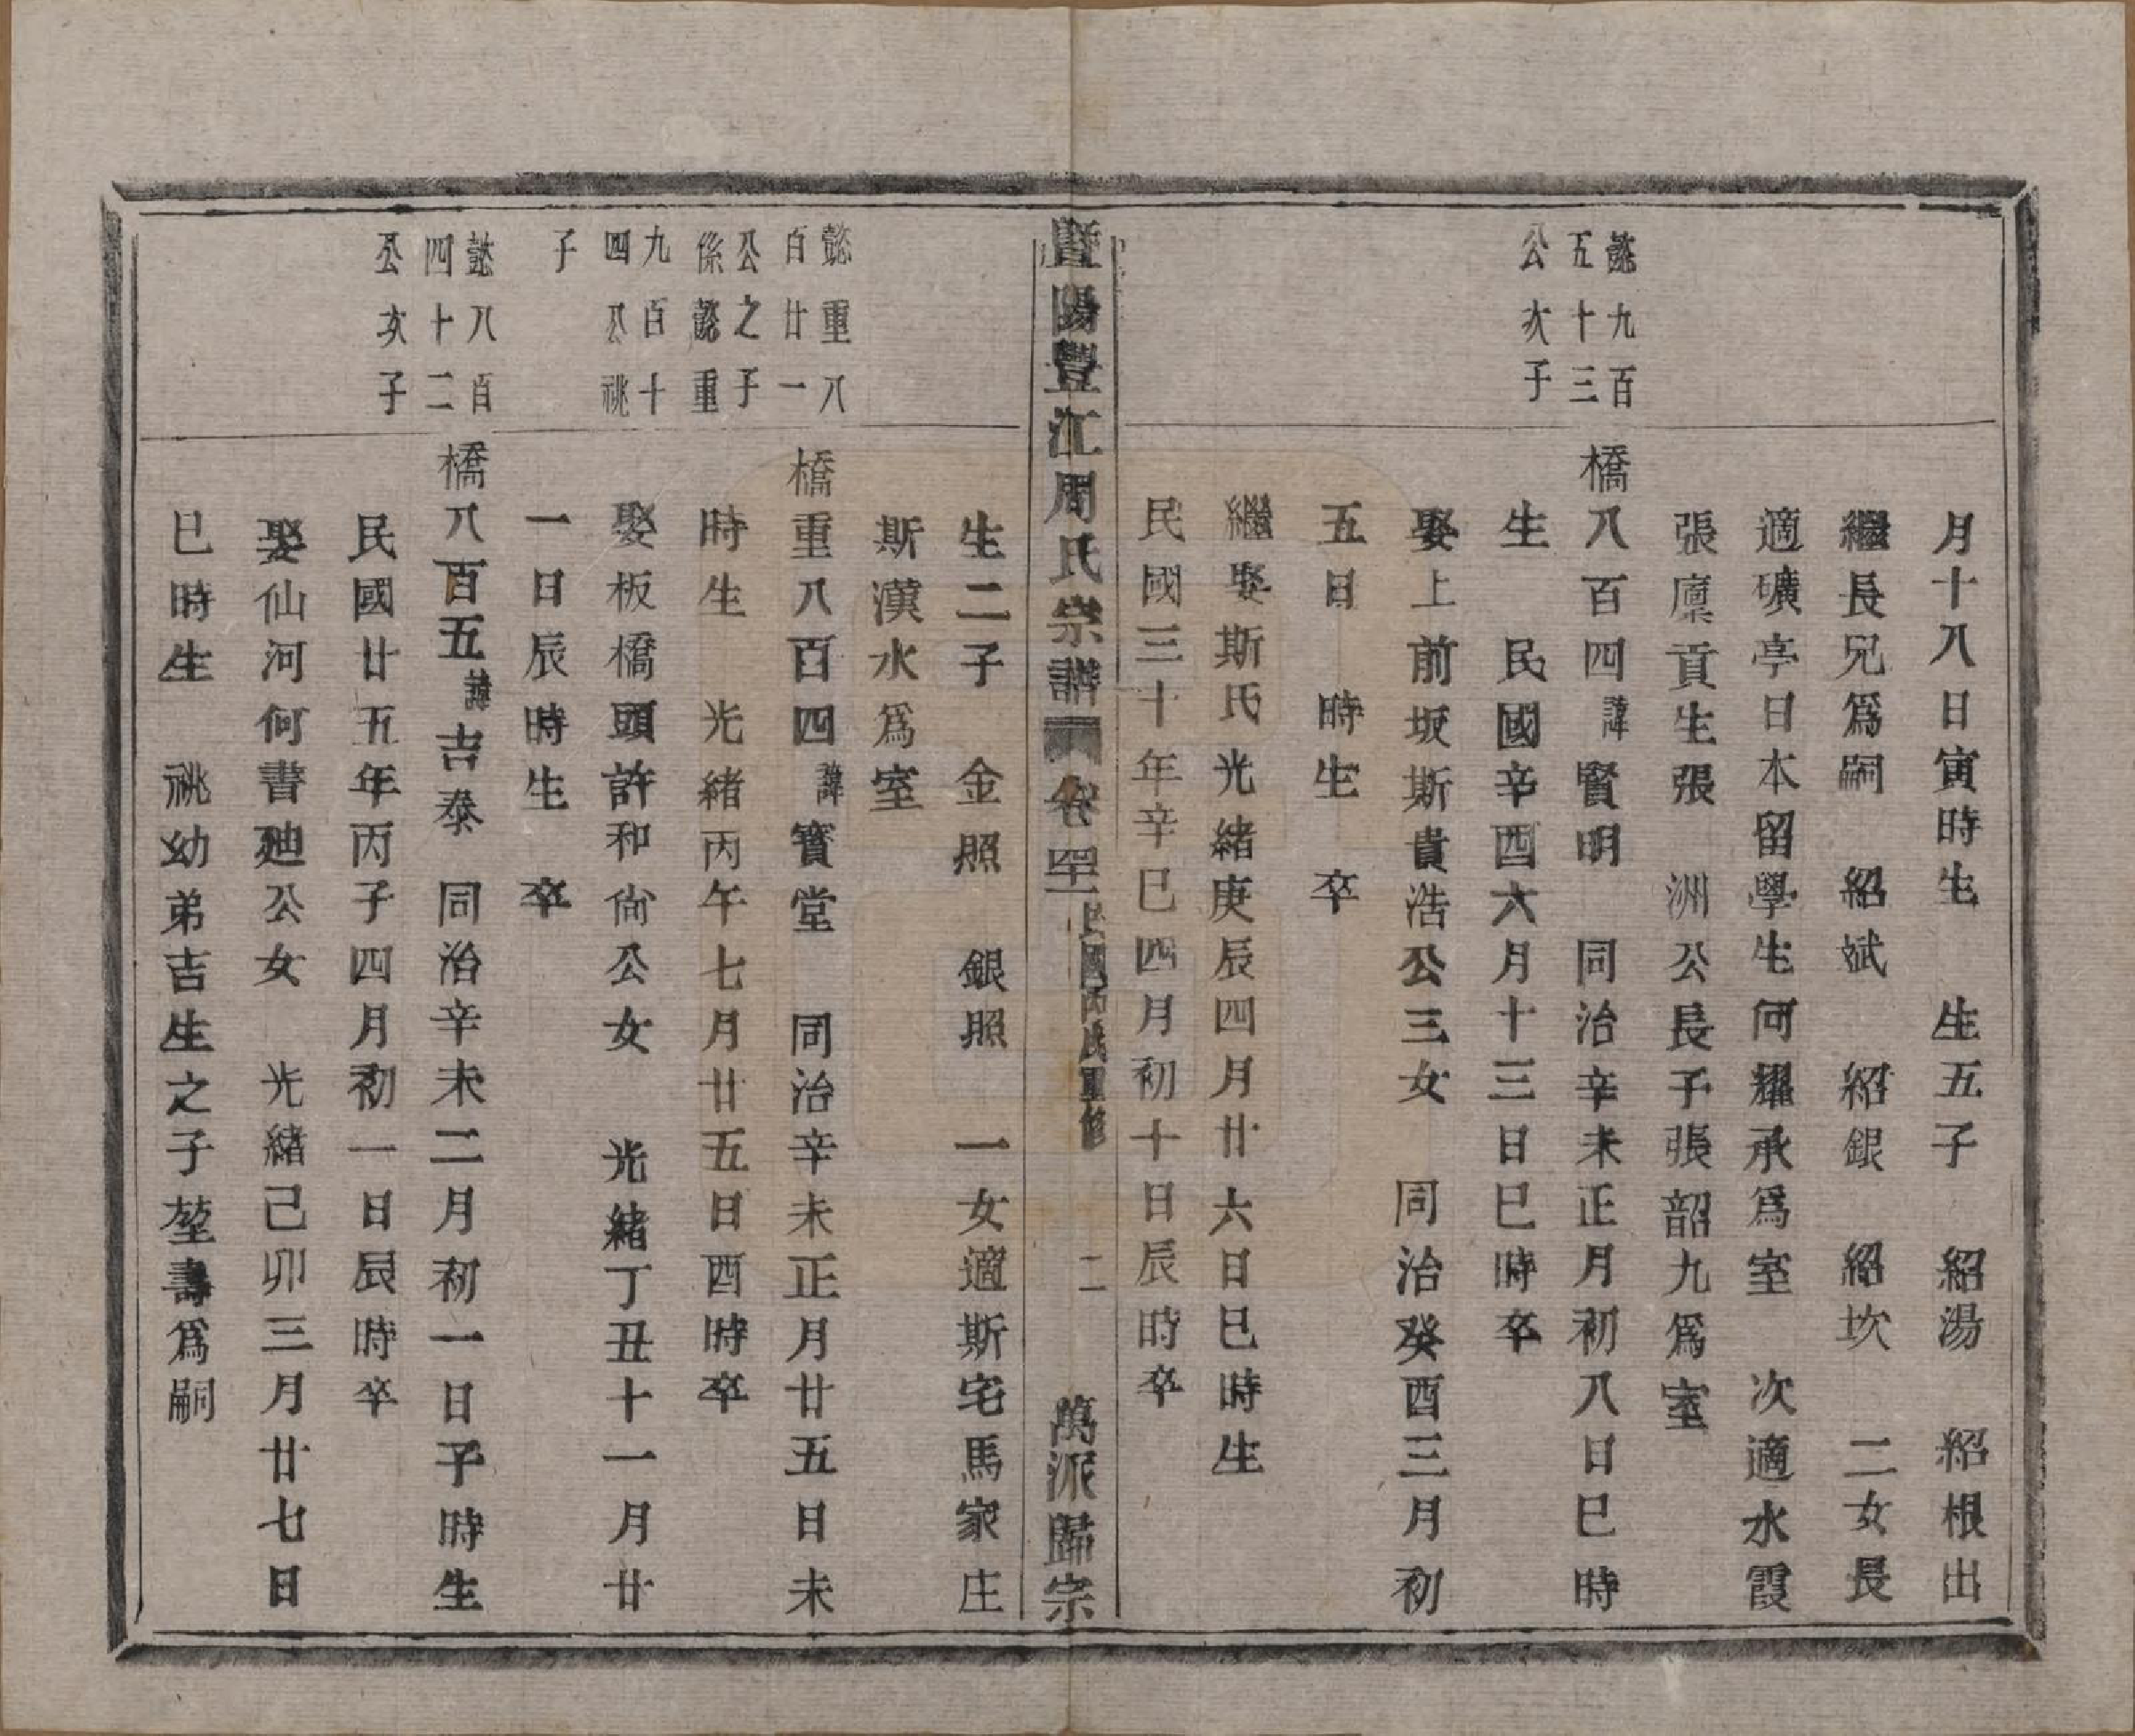 月十八日寅時生　生五子　紹湯　紹根出
繼長兄爲嗣　紹斌　紹銀　紹坎　二女長
適礦亭日本留學生何耀承爲室　次適水霞
張廩貢生張　洲公長子張韶九爲室
懿九百
五十三
公次子
橋八百四諱賢明　同治辛未正月初八日巳時
生　民國辛酉六月十三日巳時卒
娶上前坂斯貴浩公三女　同治癸酉三月初
五日　時生　卒
繼娶斯氏光緒庚辰四月廿六日巳時生
民國三十年辛巳四月初十日辰時卒
暨陽豐江周氏宗譜　卷罕　民國丙戌重修　二　萬派歸宗
生二子　金照　銀照　一女適斯宅馬家庄
斯漢水爲室
懿重八
百廿一
公之子
係懿重
九百十
四公祧
子
橋重八百四諱寶堂　同治辛未正月廿五日未
時生　光緒丙午七月廿五日酉時卒
娶板橋頭許和尙公女　光緒丁丑十一月廿
一日辰時生　卒
懿八百
四十二
公次子
橋八百五諱吉泰　同治辛未二月初一日子時生
民國廿五年丙子四月初一日辰時卒
娶仙河何書廸公女　光緒己卯三月廿七日
巳時生　祧幼弟吉生之子堃壽爲嗣